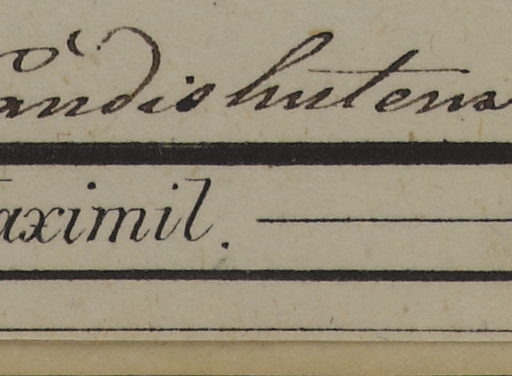 andishutens
aximil.